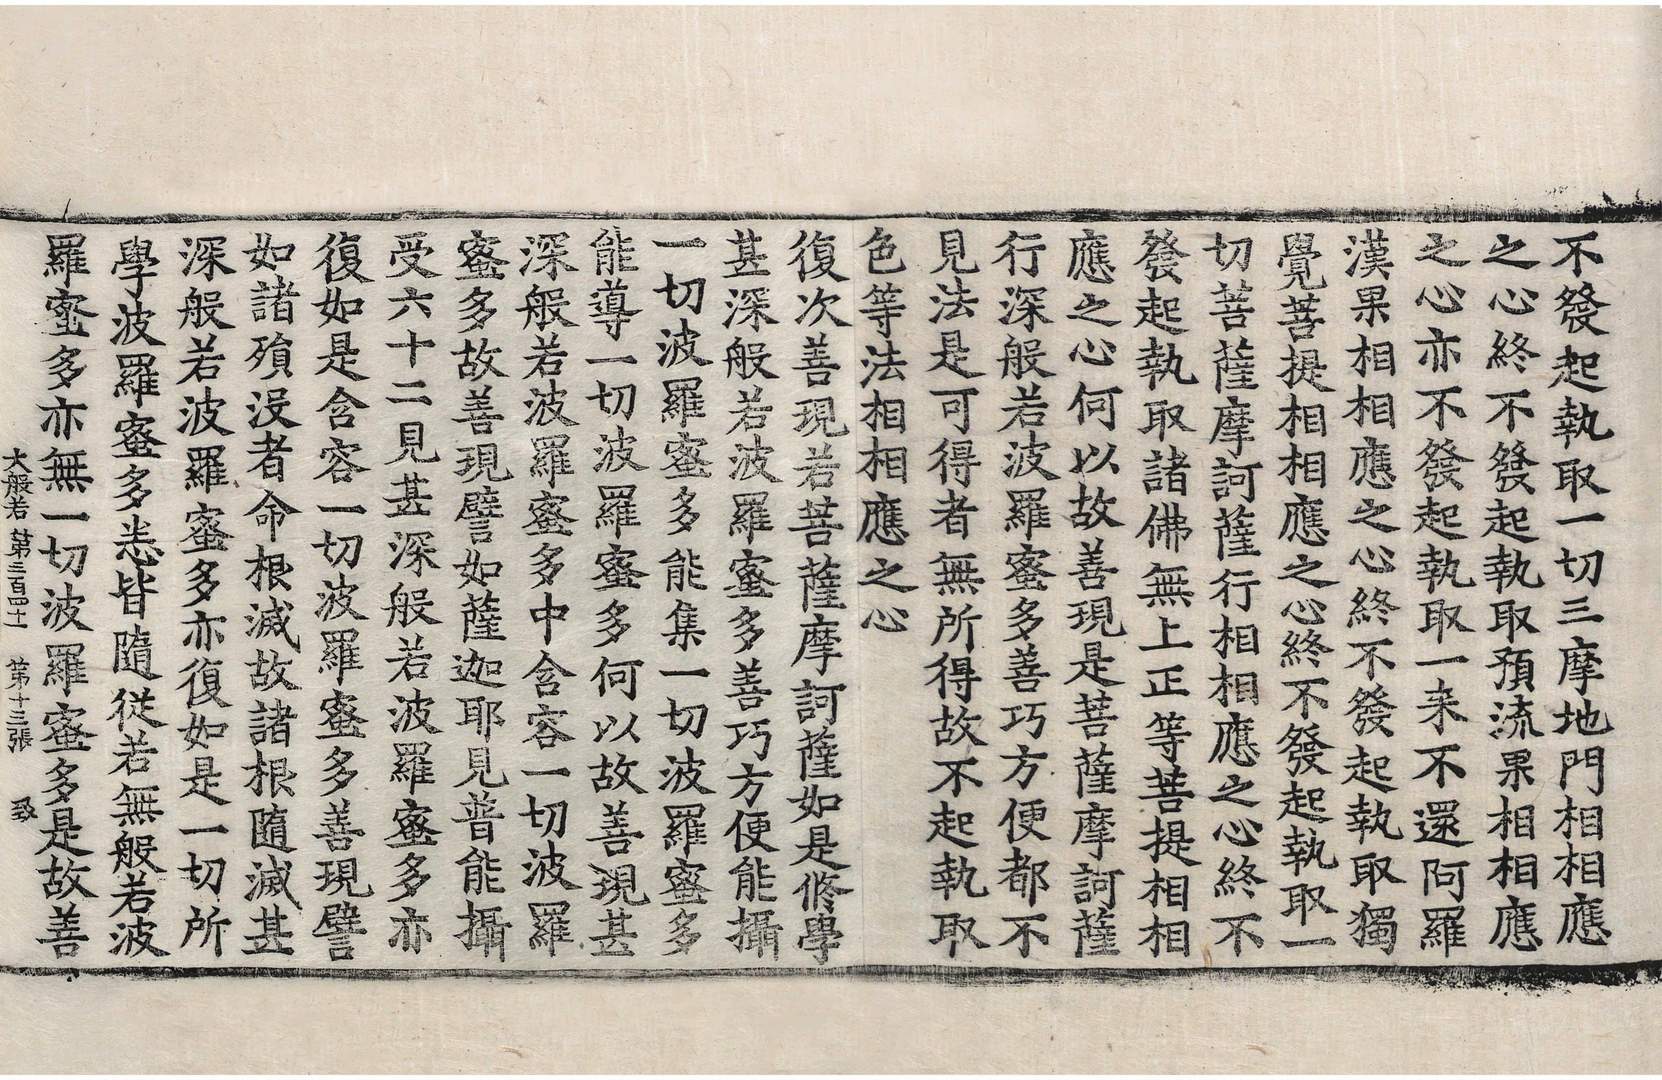 不發起執取一切三摩地門相相應
之心終不發起執取預流果相相應
之心亦不發起執取一来不還阿羅
漢果相相應之心終不發起執取獨
覺菩提相相應之心終不發起執取一
切菩薩摩訶薩行相相應之心終不
發起執取諸佛無上正等菩提相相
應之心何以故善現是菩薩摩訶薩
行深般若波羅蜜多善巧方便都不
見法是可得者無所得故不起執取
色等法相相應之心
復次善現若菩薩摩訶薩如是修學
甚深般若波羅蜜多善巧方便能攝
一切波羅蜜多能集一切波羅蜜多
能導一切波羅蜜多何以故善現甚
深般若波羅蜜多中含容一切波羅
蜜多故善現譬如薩迦耶見普能攝
受六十二見甚深般若波羅蜜多亦
復如是含容一切波羅蜜多善現譬
如諸殞没者命根滅故諸根隨滅甚
深般若波羅蜜多亦復如是一切所
學波羅蜜多悉皆隨従若無般若波
羅蜜多亦無一切波羅蜜多是故善
大般若 第三百四十一 第十三張 致